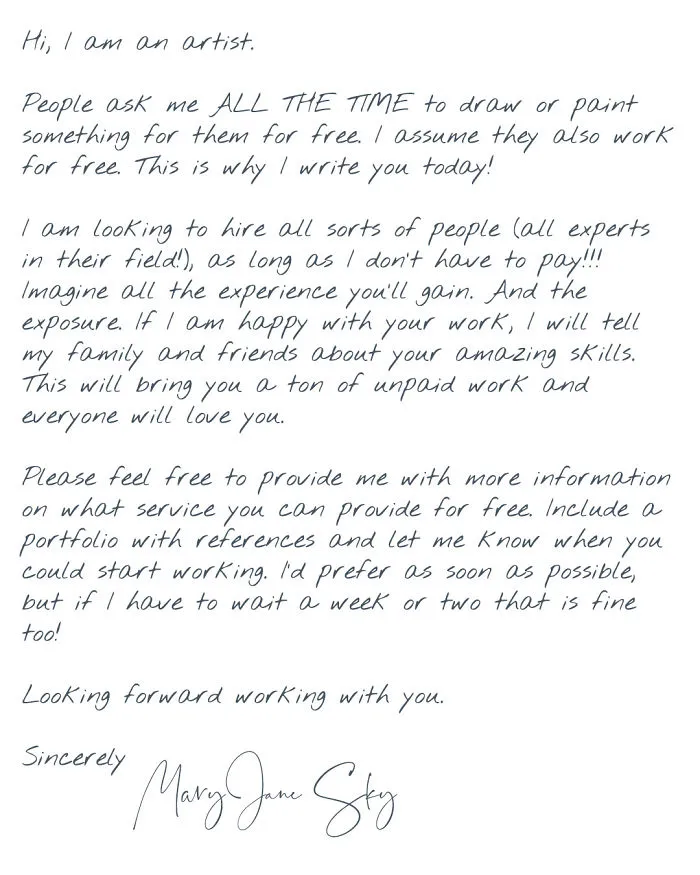 Hi, I am an artist.
People ask me ALL THE TIME to draw or paint
something for them for free. I assume they also work
for free. This is why I write you today!
I am looking to hire all sorts of people (all experts
in their field!), as long as I don't have to pay!!!
Imagine all the experience you'll gain. And the
exposure. If I am happy with your work, I will tell
my family and friends about your amazing skills.
This will bring you a ton of unpaid work and
everyone will love you.
Please feel free to provide me with more information
on what service you can provide for free. Include a
portfolio with references and let me know when you
could start working. I'd prefer as soon as possible,
but if I have to wait a week or two that is fine
too!
Looking forward working with you.
Sincerely
Mary Jane Sky